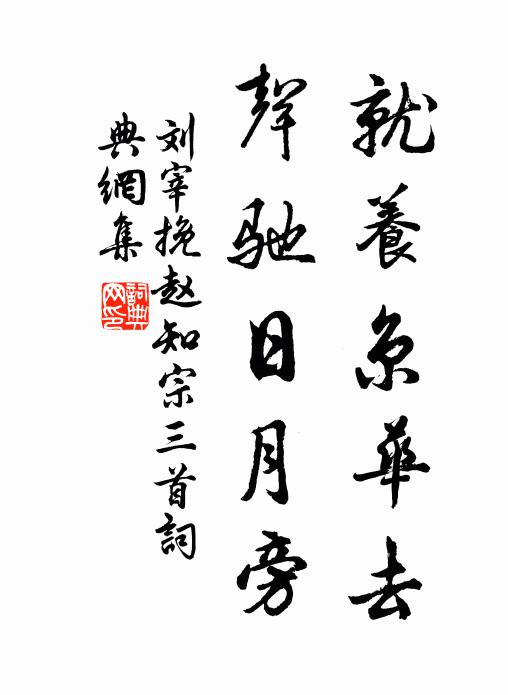 就養京華去
聲馳日月旁
刘宰挽赵知宗三首詞
典網集
詞典网印